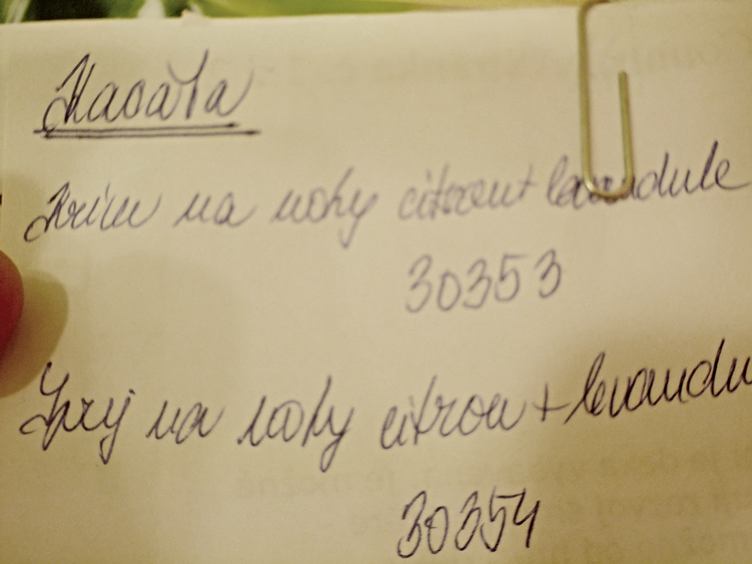 Krém na nohy citron + levandule
30353
Sprej na nohy citron + levandu
30354